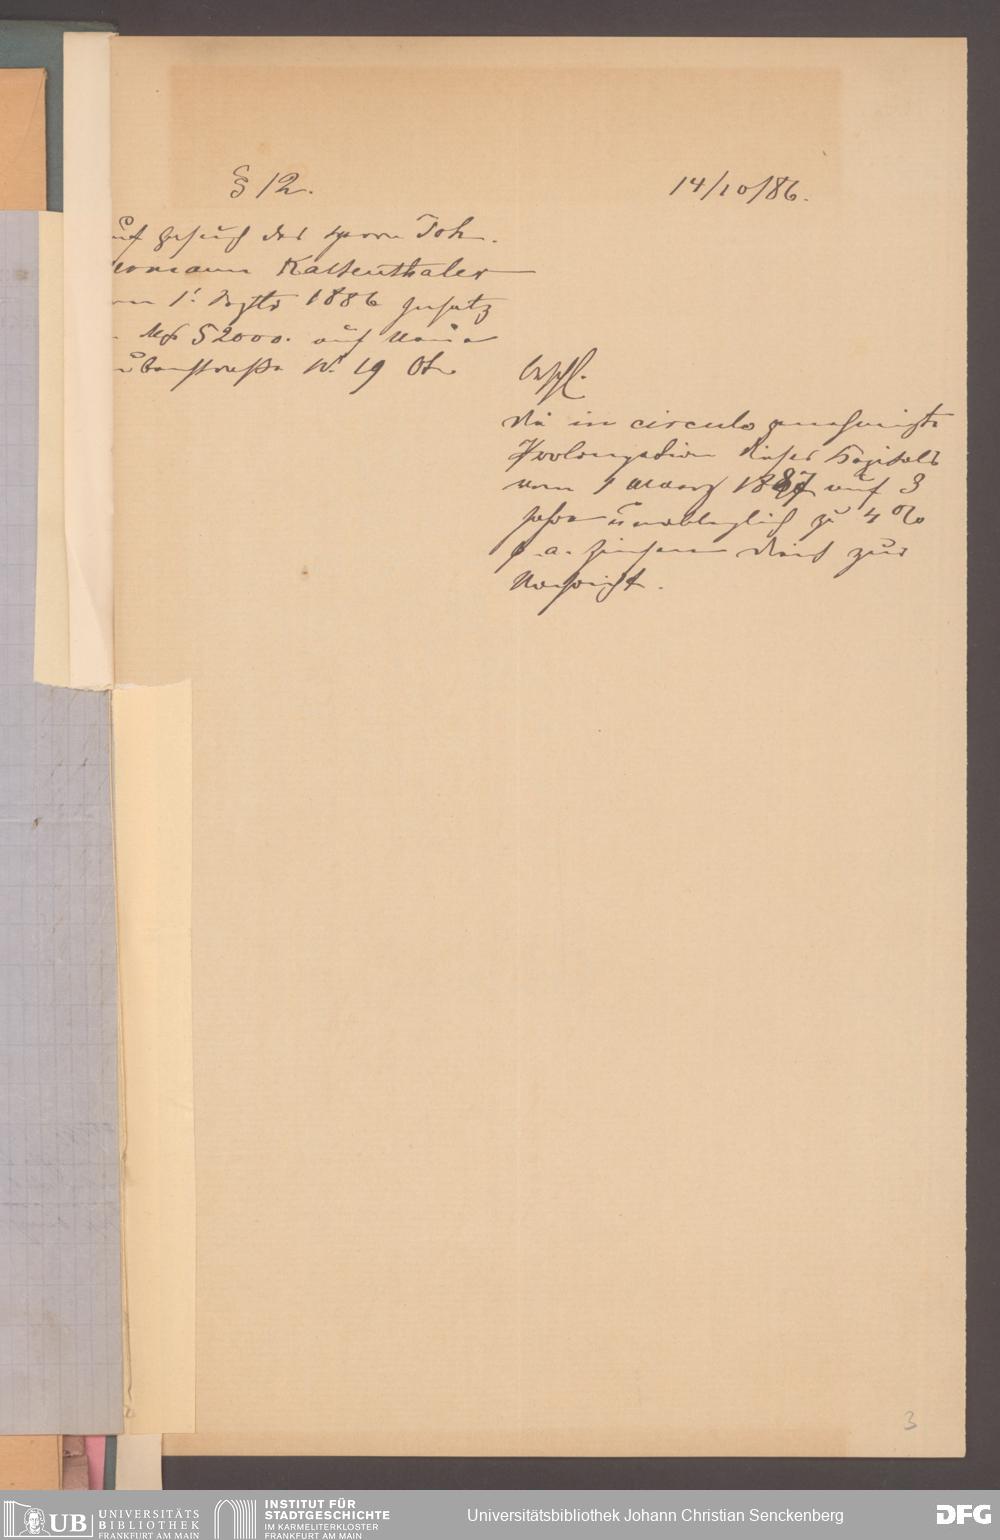 § 12.
14/10/86.
uf Gesuch des Herrn Joh.
ermann Kaltenthaler
om 1t. Septbr 1886 Insatz
M 52000. auf Neue
aubenstraße No 19 Otr.
beschl.
die in circulo genehmigte
Prolongation dieses Kapitals
vom 1 Maerz 1887 auf 3
Jahre unableglich zu 4 %
p. a. Zinsen dient zur
Nachricht.
3
UB UNIVERSITÄTS
BIBLIOTHEK
FRANKFURT AM MAIN
INSTITUT FÜR
STADTGESCHICHTE
IM KARMELITERKLOSTER
FRANKFURT AM MAIN
Universitätsbibliothek Johann Christian Senckenberg
DFG